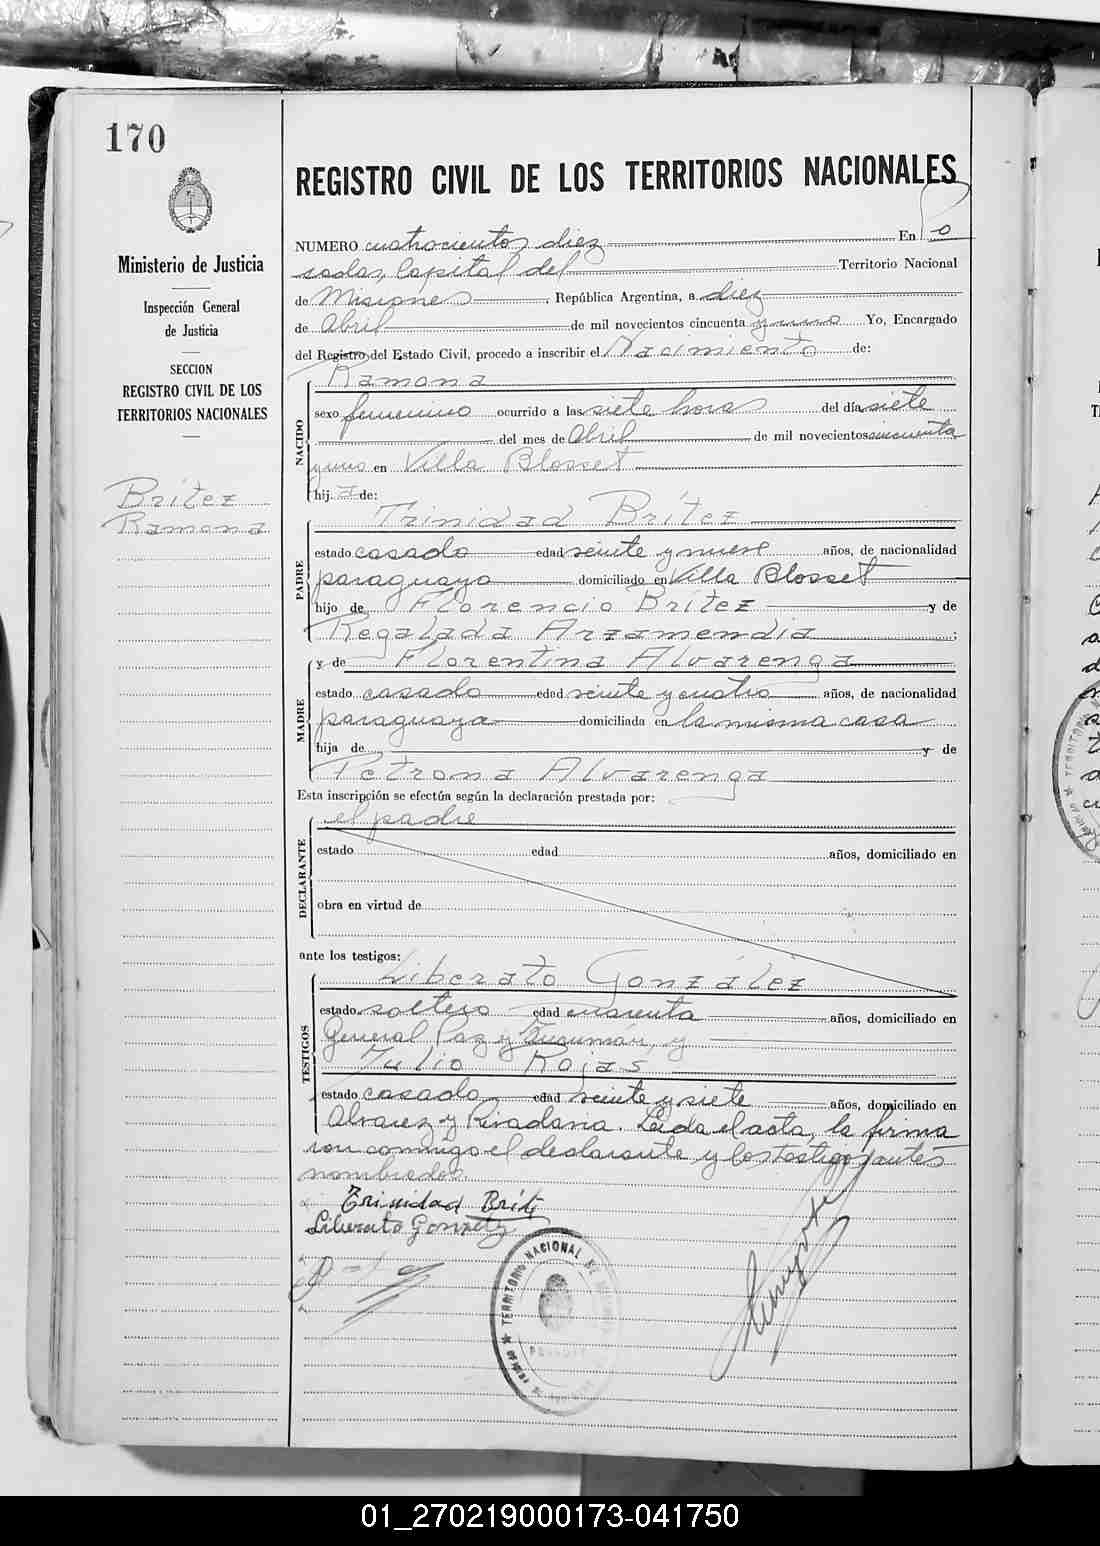 170
Ministerio de Justicia
Inspección General
de Justicia
SECCION
REGISTRO CIVIL DE LOS
TERRITORIOS NACIONALES
Brítez
Ramona
REGISTRO CIVIL DE LOS TERRITORIOS NACIONALES
NUMERO cuatrocientos diez En Po
sadas, Capital del Territorio Nacional
de Misiones, República Argentina, a diez
de Abril de mil novecientos cincuenta y uno Yo, Encargado
del Registro del Estado Civil, procedo a inscribir el Nacimiento de:
NACIDO
Ramona
sexo femenino ocurrido a las siete horas del día siete
del mes de Abril de mil novecientos cincuenta
y uno en Villa Blosset
hija de:
PADRE
Trinidad Brítez
estado casado edad veinte y nueve años, de nacionalidad
paraguaya domiciliado en Villa Blosset
hijo de Florencio Brítez y de
Regalada Arzamendia
MADRE
y de Florentina Alvarenga
estado casado edad veinte y cuatro años, de nacionalidad
paraguaya domiciliada en la misma casa
hija de y de
Petrona Alvarenga
Esta inscripción se efectúa según la declaración prestada por:
DECLARANTE
el padre
estado edad años, domiciliado en
obra en virtud de
ante los testigos:
TESTIGOS
Liberato González
estado soltero edad cuarenta años, domiciliado en
General Paz y Tucumán, y
Julio Rojas
estado casado edad veinte y siete años, domiciliado en
Alvarez y Rivadavia. Leída el acta, la firma
con conmigo el declarante y los testigos antes
nombrados.
Trinidad Brít
Liberato Gonzélez
TERRITORIO NACIONAL DE
01_270219000173-041750